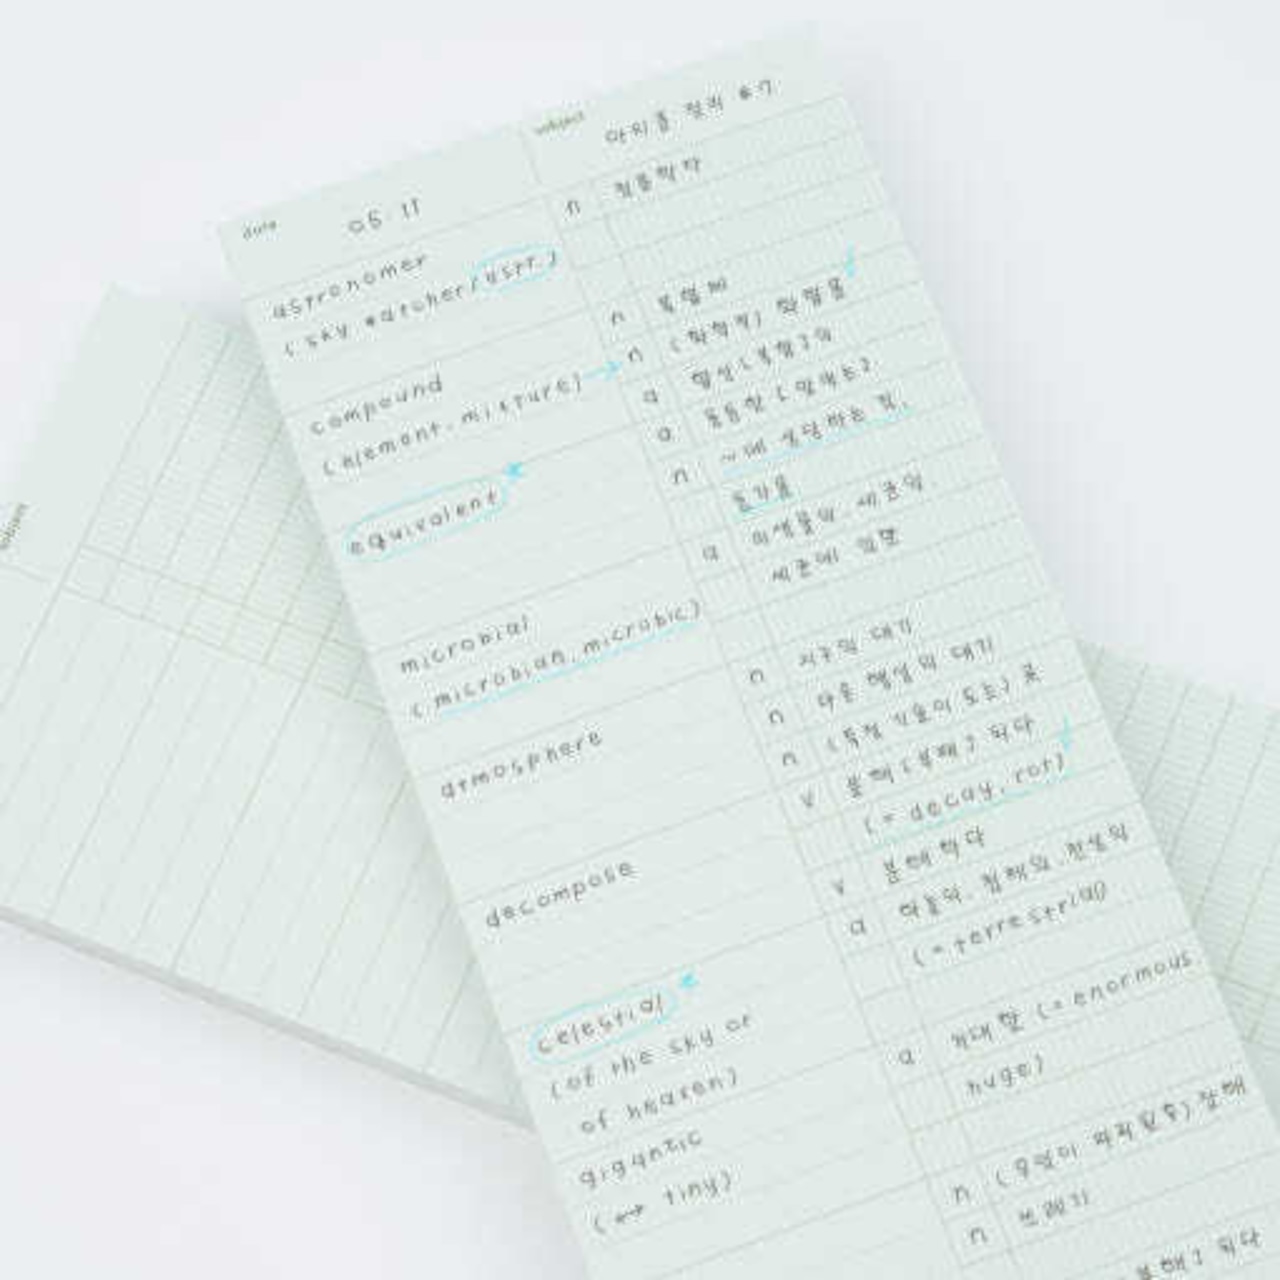 date 05 11
subject 어휘출 정리 #7
astronomer n 천문학자
(sky watcher/astr.)
compound n 복합체
(element. mixture) → n (화학적) 화합물
a 합성[복합]의
equivalent a 동등한[맞먹는]
n ~에 상당하는 것,
등가물
microbial a 미생물의. 세균의
(microbian, microbic) 세균에 의한
atmosphere n 지구의 대기
n 다른 행성의 대기
n (특정 기운이 도는) 곳
decompose v 분해[부패]되다
(= decay, rot)
v 분해하다
celestial a 하늘의. 천체의. 천상의
(of the sky or (= terrestrial)
of heaven)
gigantic a 거대한 (= enormous.
(↔ tiny) huge)
n (무엇이 파괴된 후) 잔해
n 쓰레기
subject